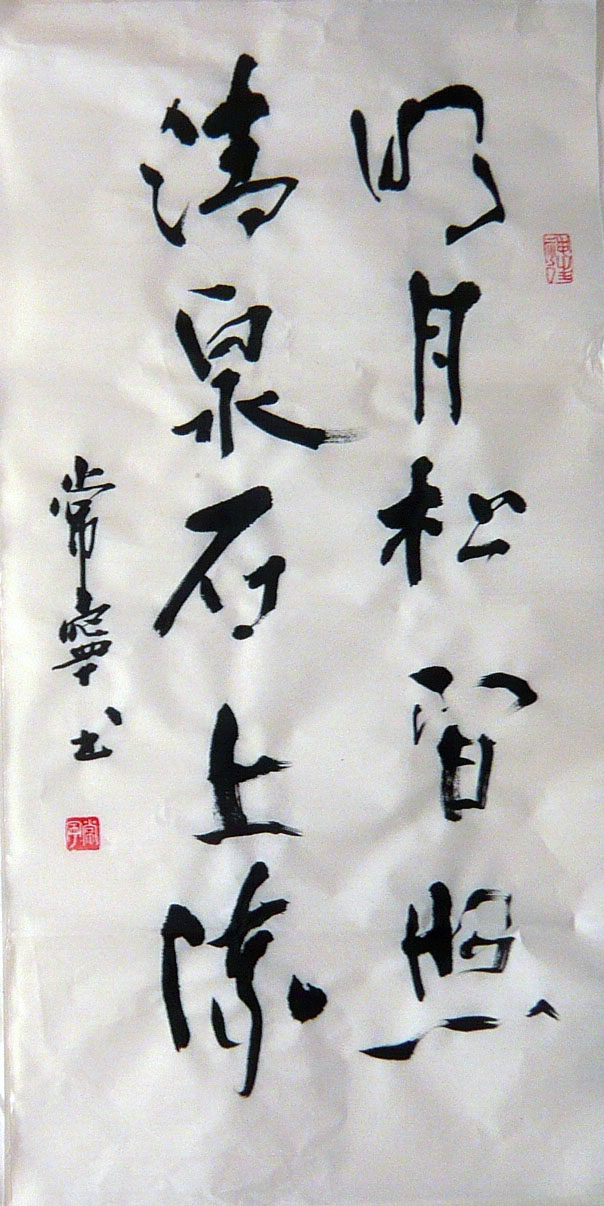 明月松间照
清泉石上流
常寧书